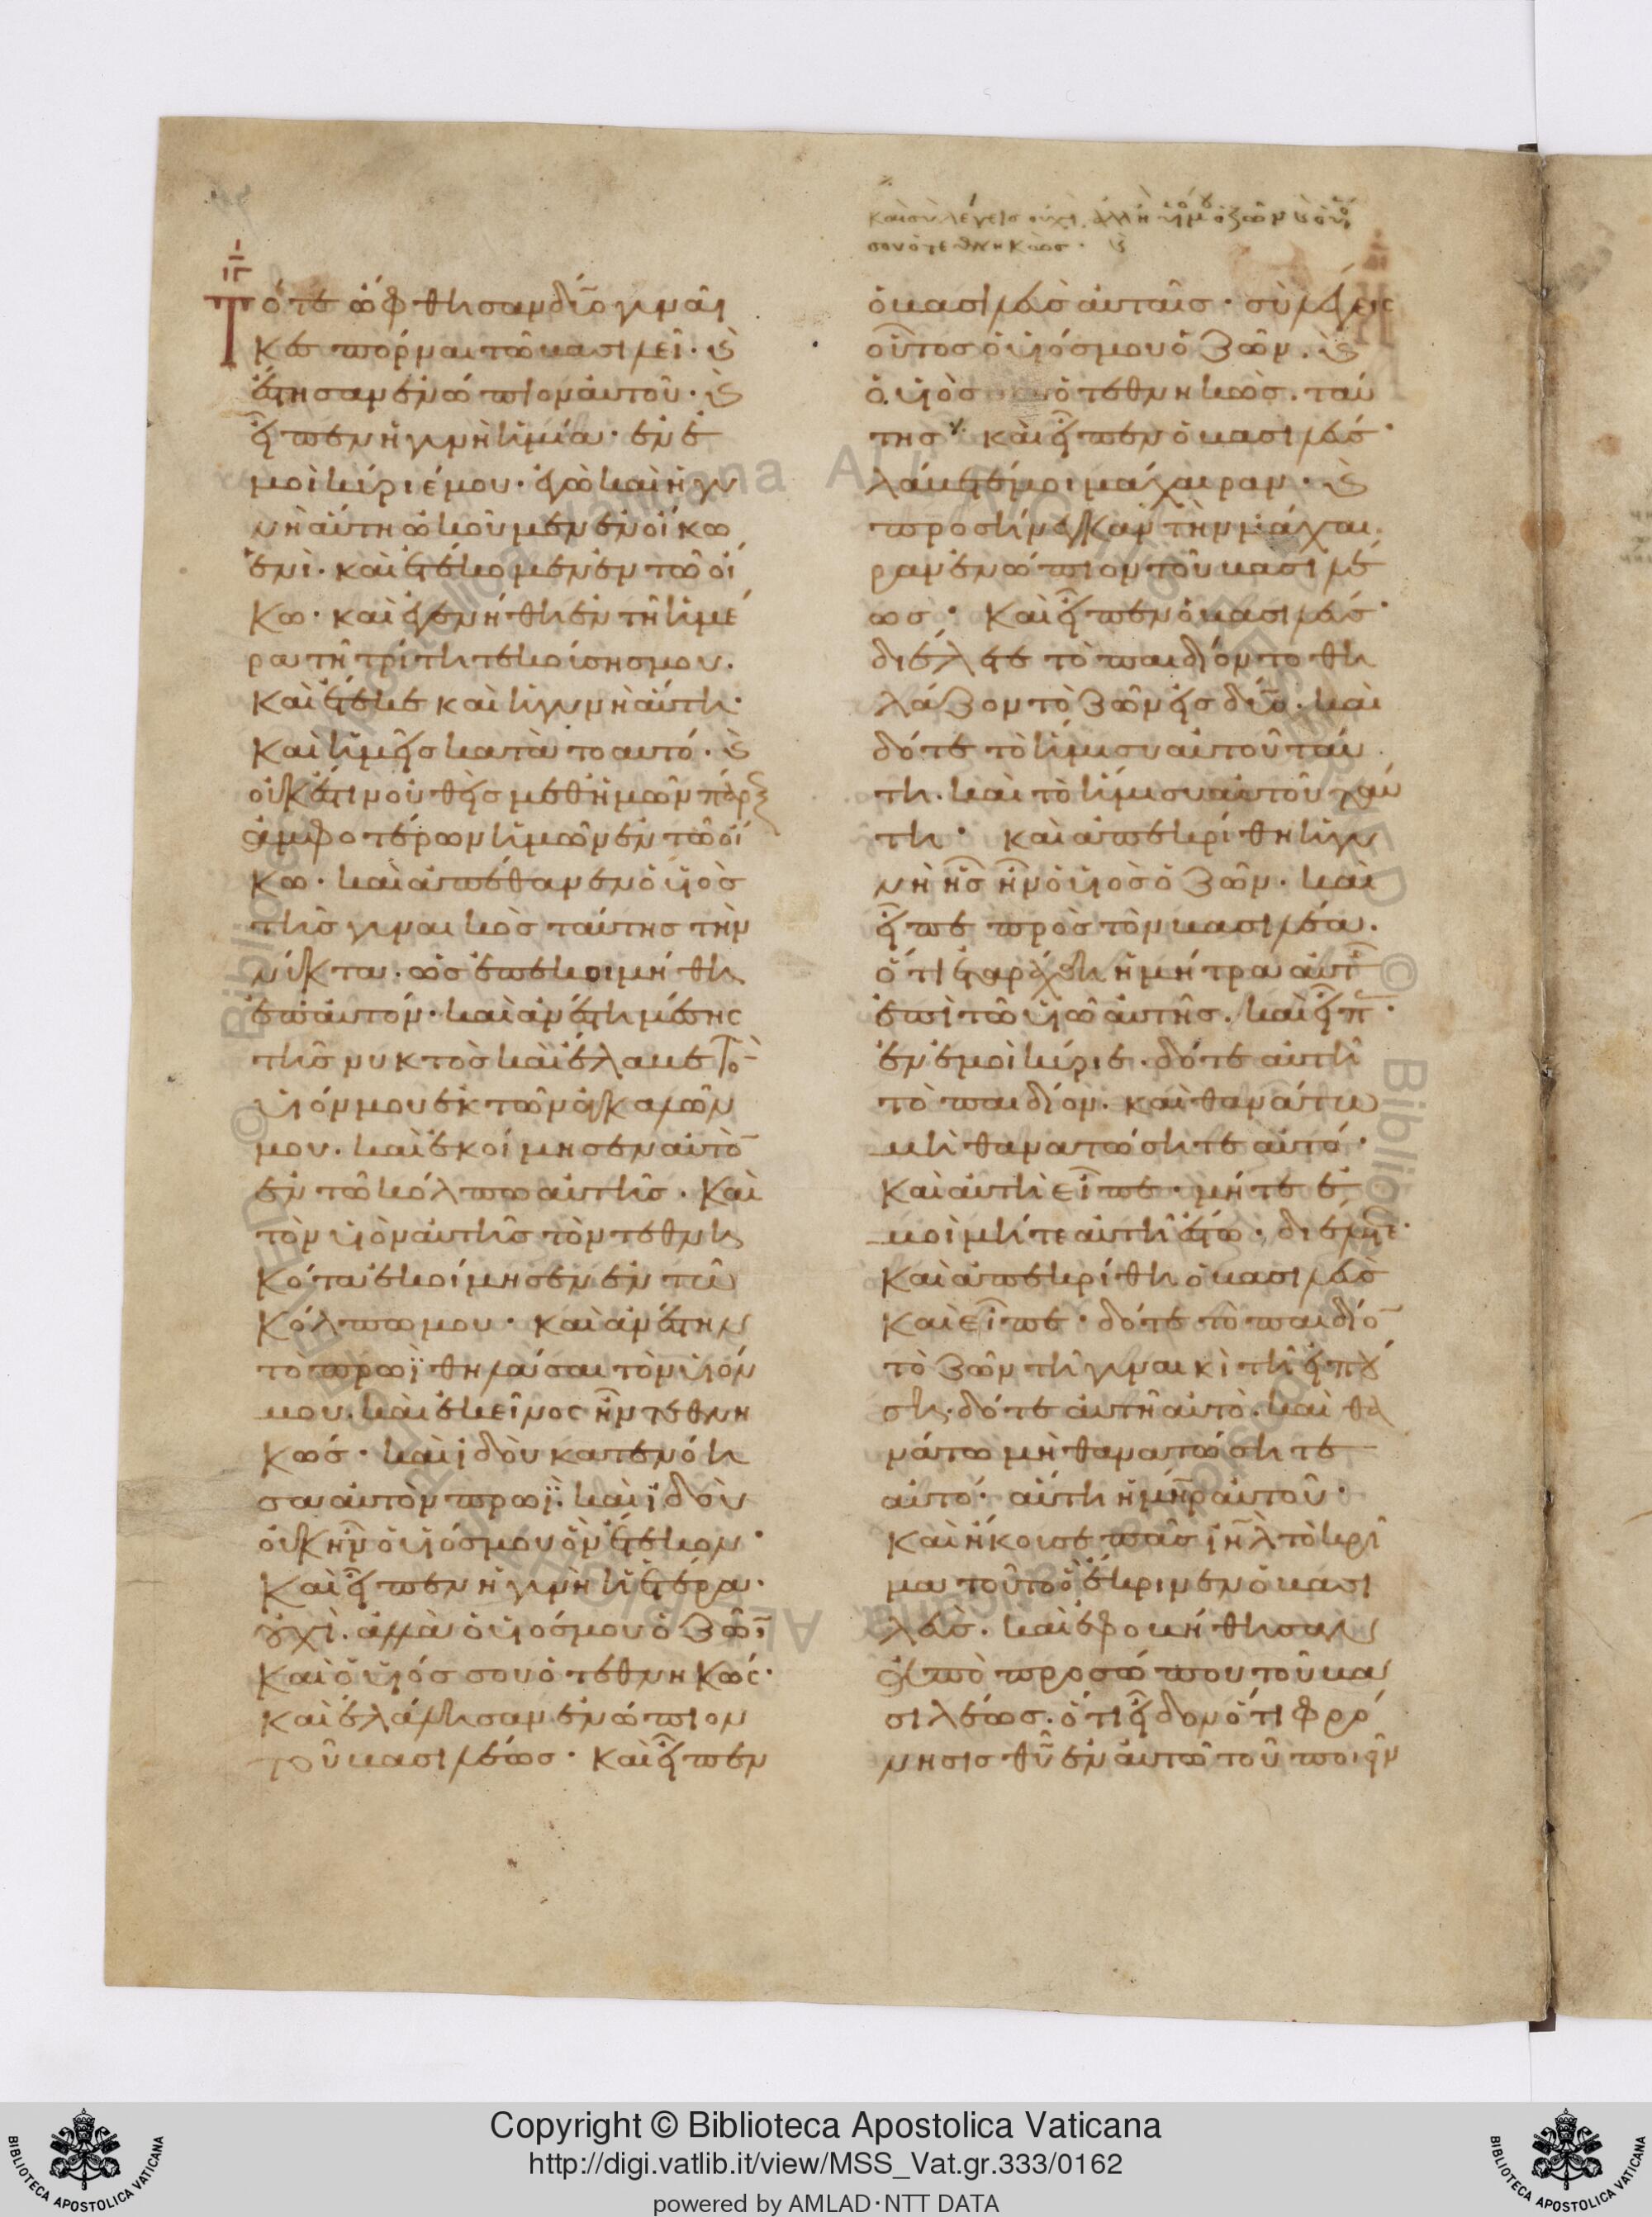 ιγ
Τότε ὤφθησαν δύο γυναῖ
κες πόρναι τῶ βασιλεῖ· καὶ
ἔστησαν ἐνώπιον αὐτοῦ· καὶ
εἶπεν ἡ γυνὴ ἡ μία· ἐν ἐ
μοὶ κύριέ μου· ἐγὼ καὶ ἡ γυ
νὴ αὕτη ὠκοῦμεν ἐν οἴκω
ἑνί· καὶ ἐτέκομεν ἐν τῶ οἴ
κω· καὶ ἐγενήθη ἐν τῆ ἡμέ
ρα τῆ τρίτη τεκούσης μου.
καὶ ἔτεκε καὶ ἡ γυνὴ αὕτη·
καὶ ἡμεῖς κατὰ το αυτό· καὶ
οὐκ ἔστιν οὐθεὶς μεθ' ἡμῶν πάρεξ
ἀμφοτέρων ἡμῶν ἐν τῶ οἴ
κω· καὶ ἀπέθανεν ὁ υἱὸς
τῆς γυναικὸς ταύτης τὴν
νύκτα· ὡς ἐπεκοιμήθη
ἐπ' αὐτόν· καὶ ἀνέστη μέσης
τῆς νυκτὸς καὶ ἔλαβε τὸν
υἱόν μου ἐκ τῶν ἀγκαλῶν
μου· καὶ ἐκοίμησεν αὐτὸ
ἐν τῶ κόλπω αὐτῆς· καὶ
τὸν υἱὸν αὐτῆς τὸν τεθνη
κότα ἐκοίμησεν ἐν τῶ
κόλπω μου· καὶ ἀνέστην
τὸ πρωῒ θηλάσαι τὸν υἱόν
μου· καὶ ἐκεῖνος ἦν τεθνη
κώς· καὶ ἰδοὺ κατενόη
σα αὐτὸν πρωΐ· καὶ ἰδοὺ
οὐκ ἦν ὁ υἱός μου ὃν ἔτεκον·
καὶ εἶπεν ἡ γυνὴ ἡ ἑτέρα·
οὐχί· ἀλλὰ ὁ υἱός μου ὁ ζῶν
καὶ ὁ υἱός σου ὁ τεθνηκώς·
καὶ ἐλάλησαν ἐνώπιον
τοῦ βασιλέως· καὶ εἶπεν
καὶ σὺ λέγεις οὐχί ἀλλ' ἢ ὁ υἱός μου ὁ ζῶν καὶ ὁ υἱός
σου ὁ τεθνηκὼς· καὶ
ὁ βασιλεὺς αὐταῖς· σὺ λέγεις
οὗτος ὁ υἱός μου ὁ ζῶν· καὶ
ὁ υἱὸς ὁ τεθνηκὼς· ταύ
της· καὶ εἶπεν ὁ βασιλεύς·
λάβετέ μοι μάχαιραν· καὶ
προσήνεγκαν τὴν μάχαι
ραν ἐνώπιον τοῦ βασιλέ
ως· καὶ εἶπεν ὁ βασιλεύς·
διέλετε τὸ παιδίον το θη
λάζον τὸ ζῶν εἰς δύο· καὶ
δότε τὸ ἥμισυ αὐτοῦ ταύ
τη· καὶ τὸ ἥμισυ αὐτοῦ ταύ
τη· καὶ ἀπεκρίθη ἡ γυ
νὴ ἧς ἦν ὁ υἱὸς ὁ ζῶν· καὶ
εἶπε πρὸς τὸν βασιλέα·
ὅτι ἐταράχθη ἡ μήτρα αὐτῆς
ἐπὶ τῶ υἱῶ αὐτῆς· καὶ εἶπ·
ἐν ἐμοὶ κύριε· δότε αὐτῆ
τὸ παιδίον· καὶ θανάτω
μὴ θανατώσητε αὐτό·
καὶ αὐτὴ εἶπε· μήτε ἐ
μοὶ μήτε αὐτῆ ἔστω· διέλετε·
καὶ ἀπεκρίθη ὁ βασιλεὺς
καὶ εἶπε· δότε τὸ παιδίον
τὸ ζῶν τῆ γυναικὶ τῆ εἰπού
ση· δότε αὐτῆ αὐτὸ· καὶ θα
νάτω μὴ θανατώσητε
αὐτό· αὕτη ἡ μηρ αὐτοῦ·
καὶ ἤκουσε πᾶς ιηλ τὸ κρί
μα τοῦτο ὃ ἔκρινεν ὁ βασι
λεύς· καὶ ἐφοβήθησαν
ἀπὸ προσώπου τοῦ βα
σιλέως· ὅτι εἶδον ὅτι φρό
νησις θυ ἐν αὐτῶ τοῦ ποιεῖν
Copyright © Biblioteca Apostolica Vaticana
http://digi.vatlib.it/view/MSS_Vat.gr.333/0162
powered by AMLAD·NTT DATA
BIBLIOTECA APOSTOLICA VATICANA
BIBLIOTECA APOSTOLICA VATICANA